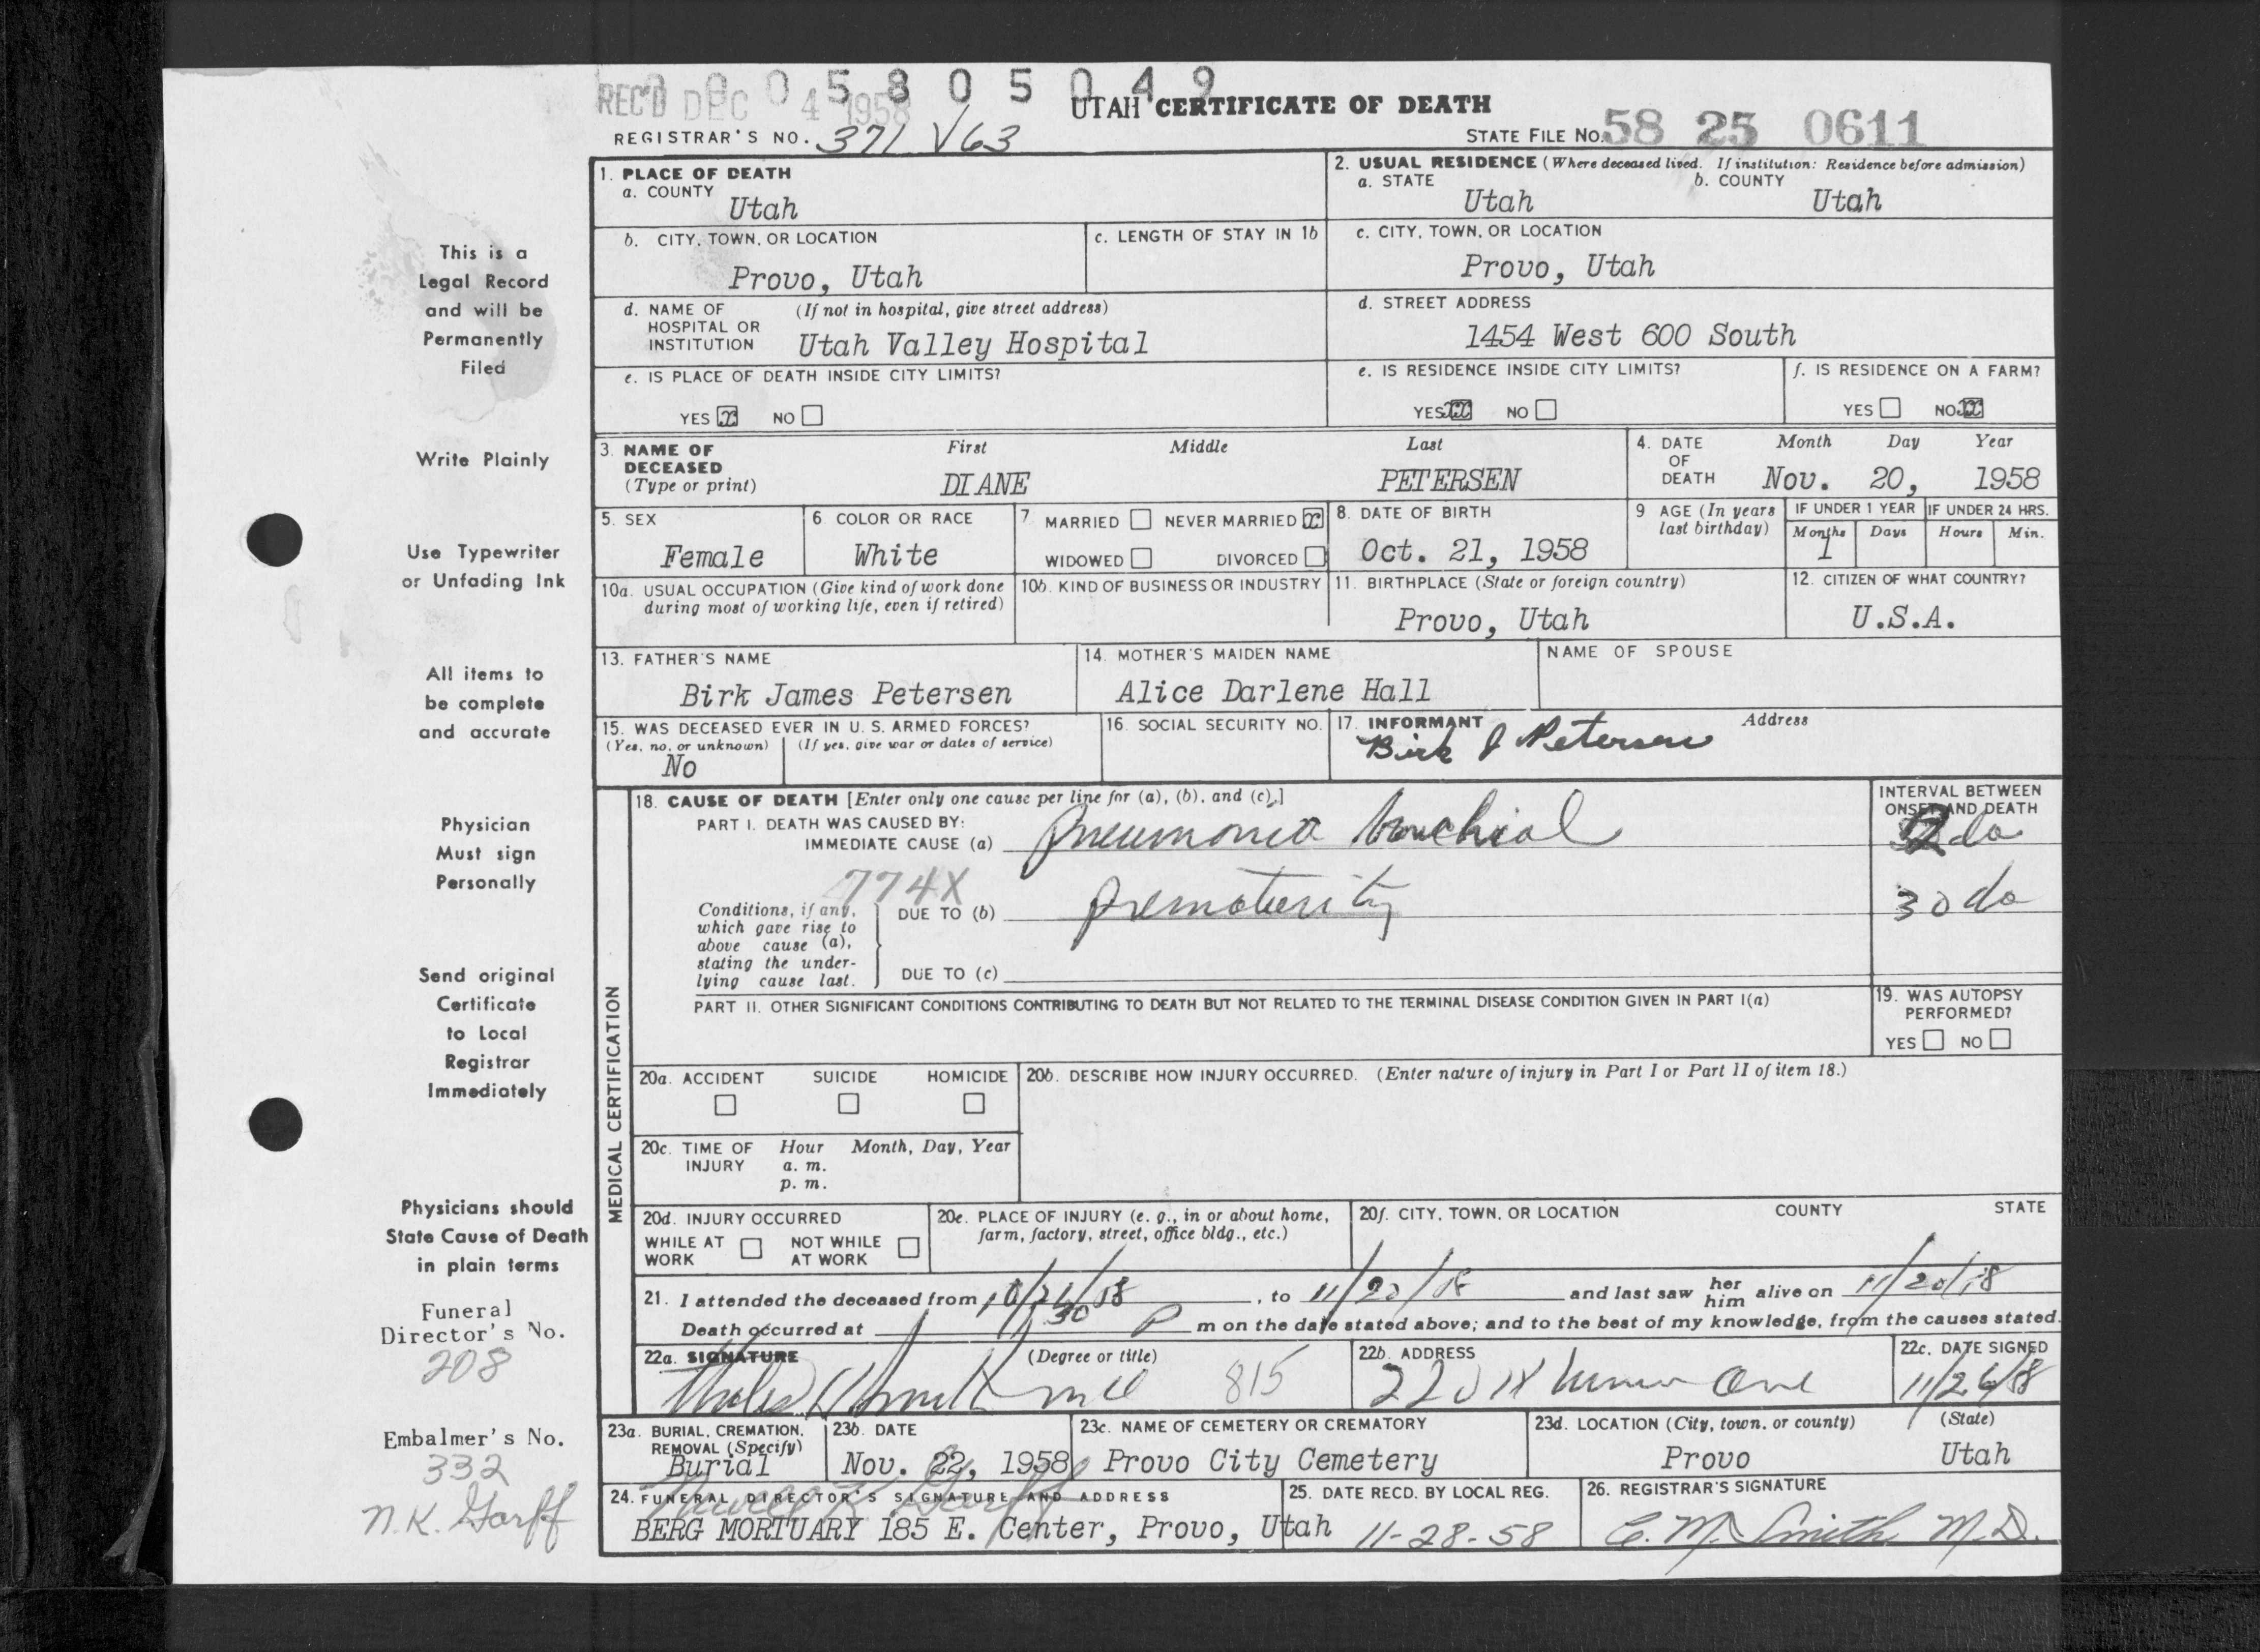 0 0 0 5 8 0 5 0 4 9
REC'D DEC 4 1958
UTAH CERTIFICATE OF DEATH
REGISTRAR'S NO. 371 V63
STATE FILE NO. 58 25 0611
1. PLACE OF DEATH
a. COUNTY
Utah
2. USUAL RESIDENCE (Where deceased lived. If institution: Residence before admission)
a. STATE b. COUNTY
Utah Utah
b. CITY, TOWN, OR LOCATION
Provo, Utah
c. LENGTH OF STAY IN 1b
c. CITY, TOWN, OR LOCATION
Provo, Utah
d. NAME OF (If not in hospital, give street address)
HOSPITAL OR
INSTITUTION Utah Valley Hospital
d. STREET ADDRESS
1454 West 600 South
e. IS PLACE OF DEATH INSIDE CITY LIMITS?
YES x NO
e. IS RESIDENCE INSIDE CITY LIMITS?
YES xx NO
f. IS RESIDENCE ON A FARM?
YES NO xx
3. NAME OF First Middle Last
DECEASED
(Type or print) DIANE PETERSEN
4. DATE Month Day Year
OF
DEATH Nov. 20, 1958
5. SEX
Female
6. COLOR OR RACE
White
7. MARRIED NEVER MARRIED x
WIDOWED DIVORCED
8. DATE OF BIRTH
Oct. 21, 1958
9 AGE (In years
last birthday)
IF UNDER 1 YEAR IF UNDER 24 HRS.
Months Days Hours Min.
1
10a. USUAL OCCUPATION (Give kind of work done
during most of working life, even if retired)
10b. KIND OF BUSINESS OR INDUSTRY
11. BIRTHPLACE (State or foreign country)
Provo, Utah
12. CITIZEN OF WHAT COUNTRY?
U.S.A.
13. FATHER'S NAME
Birk James Petersen
14. MOTHER'S MAIDEN NAME
Alice Darlene Hall
NAME OF SPOUSE
15. WAS DECEASED EVER IN U. S. ARMED FORCES?
(Yes, no, or unknown) (If yes, give war or dates of service)
No
16. SOCIAL SECURITY NO.
17. INFORMANT Address
Birk J Petersen
18. CAUSE OF DEATH [Enter only one cause per line for (a), (b), and (c).]
PART I. DEATH WAS CAUSED BY:
IMMEDIATE CAUSE (a) Pneumonia bronchial
INTERVAL BETWEEN
ONSET AND DEATH
2 da
774X
Conditions, if any,
which gave rise to
above cause (a),
stating the under-
lying cause last.
DUE TO (b) Prematurity
30 da
DUE TO (c)
PART II. OTHER SIGNIFICANT CONDITIONS CONTRIBUTING TO DEATH BUT NOT RELATED TO THE TERMINAL DISEASE CONDITION GIVEN IN PART I(a)
19. WAS AUTOPSY
PERFORMED?
YES NO
MEDICAL CERTIFICATION
20a. ACCIDENT SUICIDE HOMICIDE
20b. DESCRIBE HOW INJURY OCCURRED. (Enter nature of injury in Part I or Part II of item 18.)
20c. TIME OF Hour Month, Day, Year
INJURY a. m.
p. m.
20d. INJURY OCCURRED
WHILE AT NOT WHILE
WORK AT WORK
20e. PLACE OF INJURY (e. g., in or about home,
farm, factory, street, office bldg., etc.)
20f. CITY, TOWN, OR LOCATION COUNTY STATE
21. I attended the deceased from 10/21/58, to 11/20/58 and last saw her him alive on 11/20/58
Death occurred at 30 P m on the date stated above; and to the best of my knowledge, from the causes stated.
22a. SIGNATURE (Degree or title)
Smith MD 815
22b. ADDRESS
220 Ave
22c. DATE SIGNED
11/26/58
23a. BURIAL, CREMATION,
REMOVAL (Specify)
Burial
23b. DATE
Nov. 22, 1958
23c. NAME OF CEMETERY OR CREMATORY
Provo City Cemetery
23d. LOCATION (City, town, or county) (State)
Provo Utah
24. FUNERAL DIRECTOR'S SIGNATURE AND ADDRESS
BERG MORTUARY 185 E. Center, Provo, Utah
25. DATE RECD. BY LOCAL REG.
11-28-58
26. REGISTRAR'S SIGNATURE
C. M. Smith M.D.
This is a
Legal Record
and will be
Permanently
Filed
Write Plainly
Use Typewriter
or Unfading Ink
All items to
be complete
and accurate
Physician
Must sign
Personally
Send original
Certificate
to Local
Registrar
Immediately
Physicians should
State Cause of Death
in plain terms
Funeral
Director's No.
208
Embalmer's No.
332
N.K. Garff